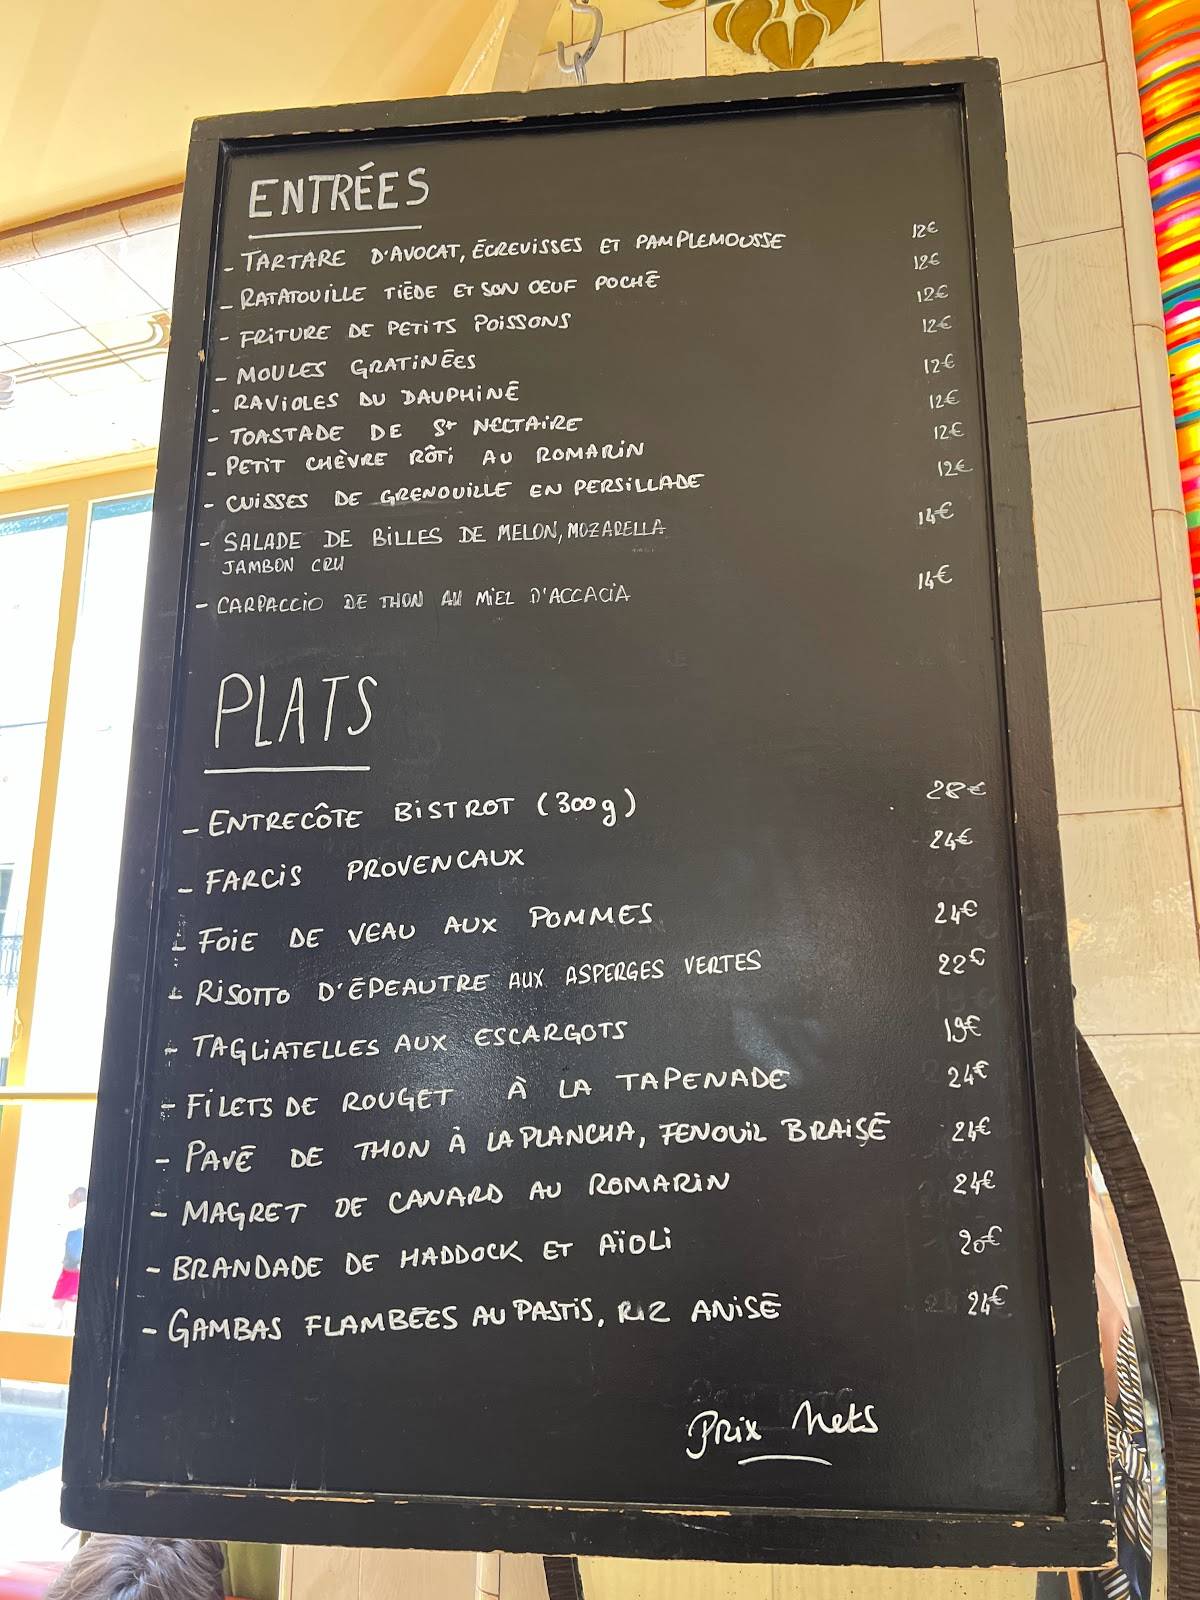 ENTRÉES
- TARTARE D'AVOCAT, ÉCREVISSES ET PAMPLEMOUSSE 12€
- RATATOUILLE TIĒDE ET SON OEUF POCHĒ 12€
- FRITURE DE PETITS POISSONS 12€
- MOULES GRATINĒES 12€
- RAVIOLES DU DAUPHINĒ 12€
- TOASTADE DE St NECTAIRE 12€
- PETIT CHÈVRE RÔTI AU ROMARIN 12€
- CUISSES DE GRENOUILLE EN PERSILLADE 12€
- SALADE DE BILLES DE MELON, MOZARELLA 14€
JAMBON CRU
- CARPACCIO DE THON AU MIEL D'ACCACIA 14€
PLATS
- ENTRECÔTE BISTROT (300g) 28€
- FARCIS PROVENCAUX 24€
- FOIE DE VEAU AUX POMMES 24€
- RISOTTO D'ĒPEAUTRE AUX ASPERGES VERTES 22€
- TAGLIATELLES AUX ESCARGOTS 19€
- FILETS DE ROUGET À LA TAPENADE 24€
- PAVĒ DE THON À LA PLANCHA, FENOUIL BRAISĒ 24€
- MAGRET DE CANARD AU ROMARIN 24€
- BRANDADE DE HADDOCK ET AÏOLI 20€
- GAMBAS FLAMBĒES AU PASTIS, RIZ ANISĒ 24€
Prix Nets